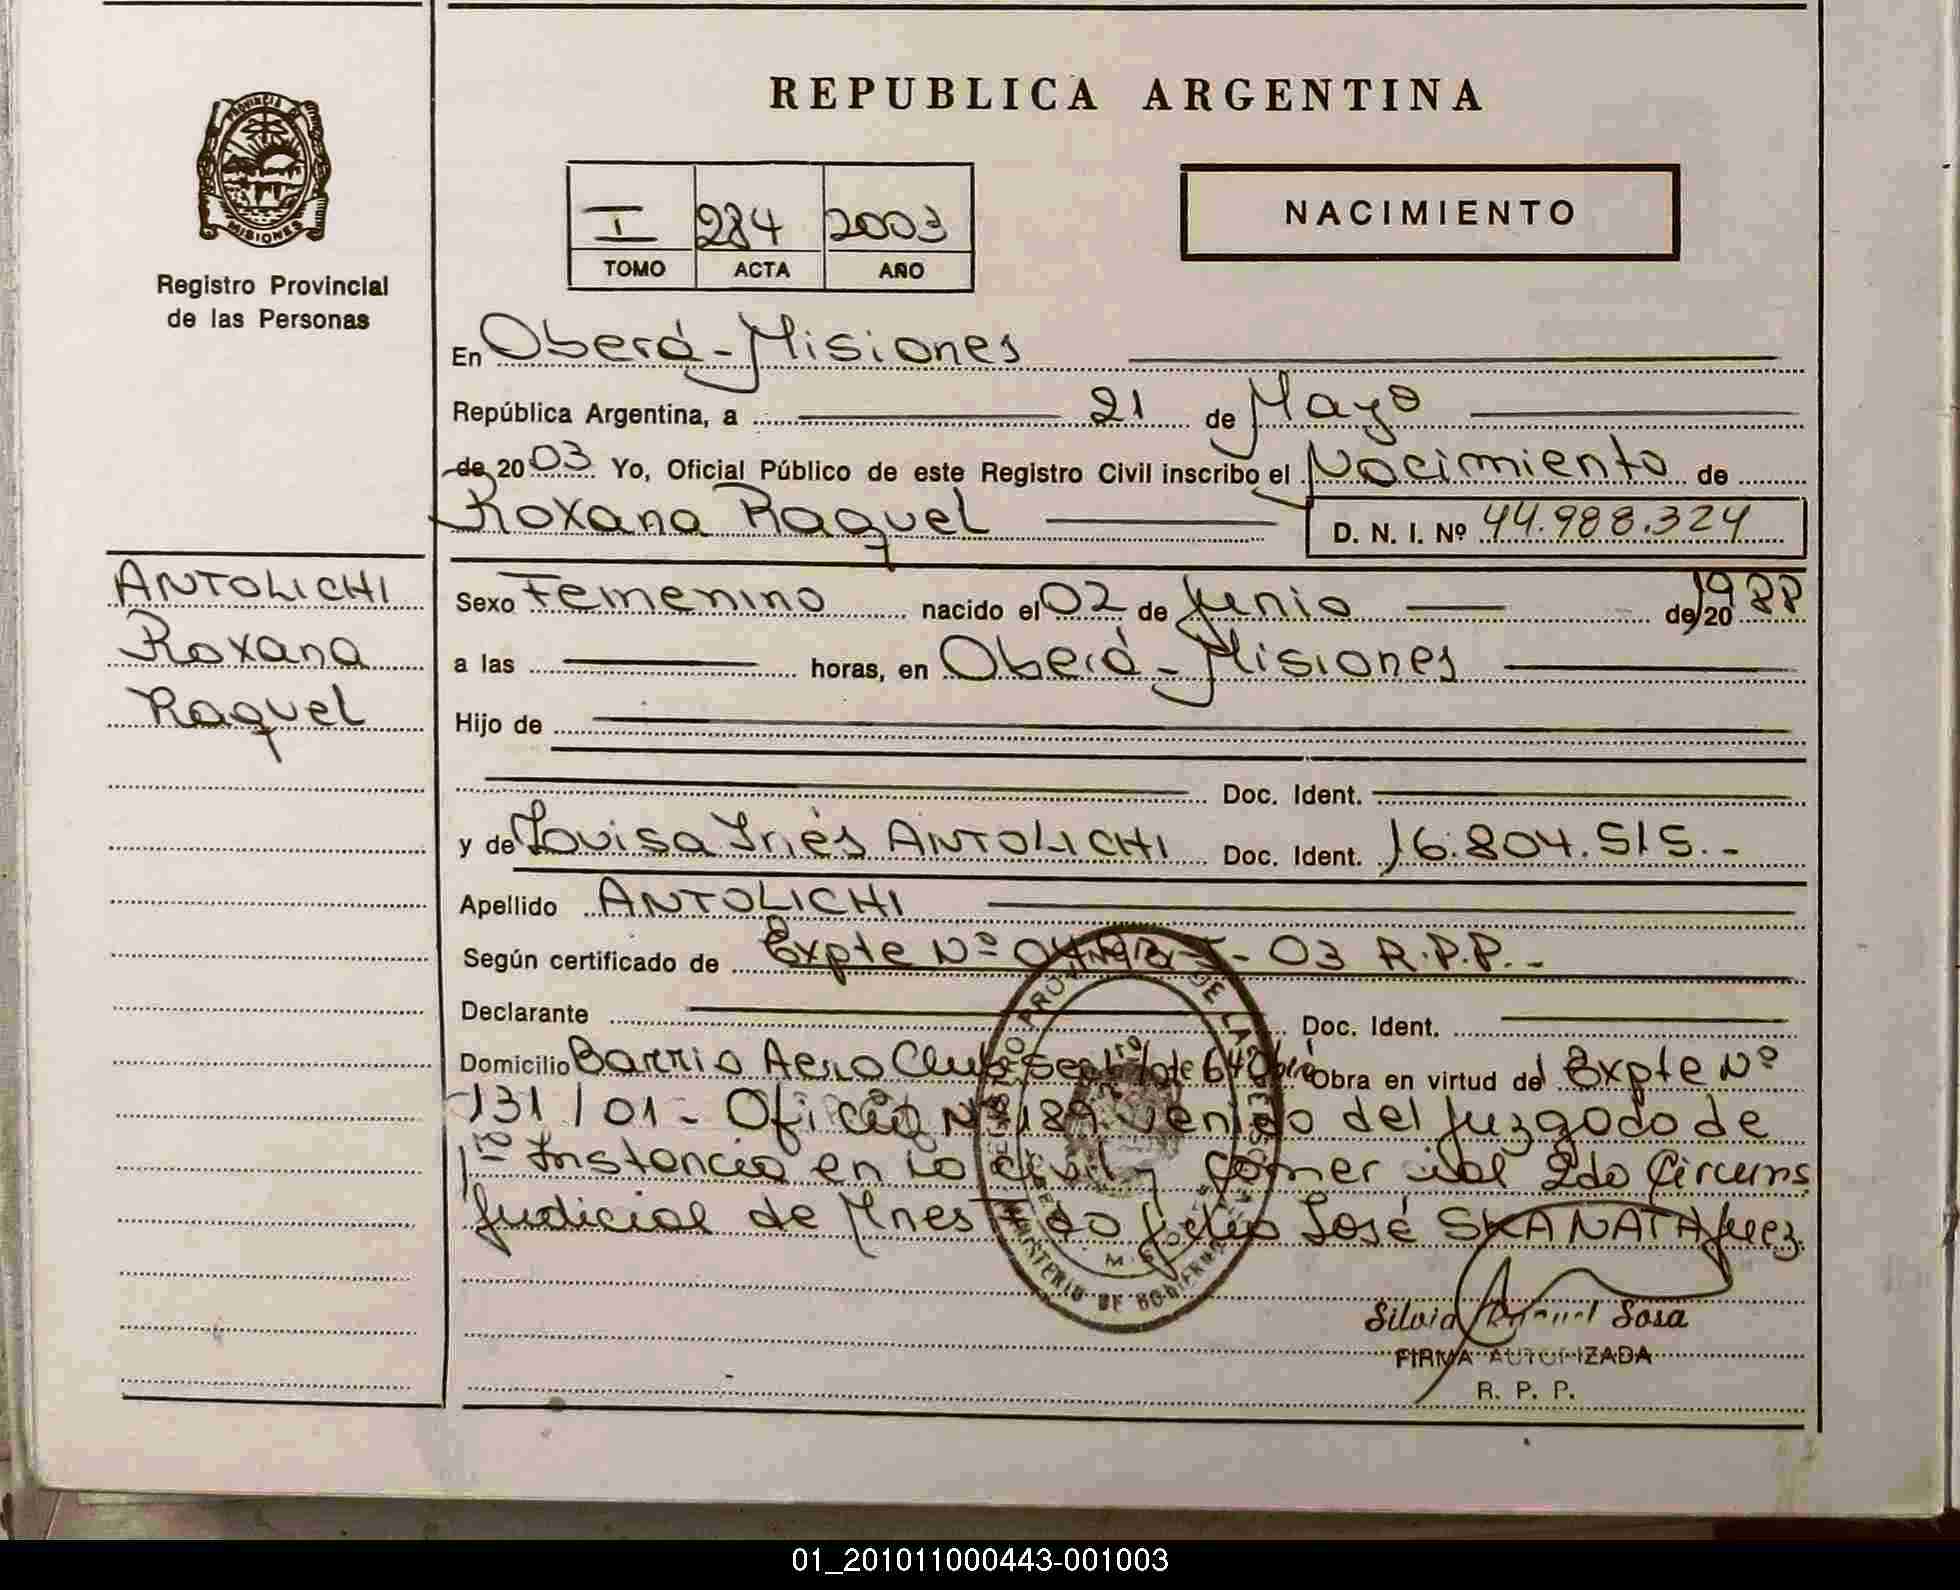 REPUBLICA ARGENTINA
PROVINCIA DE
MISIONES
Registro Provincial
de las Personas
I 284 2003
TOMO ACTA AÑO
NACIMIENTO
En Oberá - Misiones
República Argentina, a 21 de Mayo
de 2003 Yo, Oficial Público de este Registro Civil inscribo el Nacimiento de
Roxana Raquel
D. N. I. Nº 44.988.324
ANTOLICHI
Roxana
Raquel
Sexo Femenino nacido el 02 de Junio de 20 1988
a las horas, en Oberá - Misiones
Hijo de
Doc. Ident.
y de Louisa Inés ANTOLICHI Doc. Ident. 16.804.515.-
Apellido ANTOLICHI
Según certificado de Expte Nº - 03 R.P.P. -
Declarante Doc. Ident.
Domicilio Barrio Aero Club Obra en virtud de Expte Nº
131/01 - Oficio Nº 189 venido del Juzgado de
1ra Instancia en lo Civil y Comercial 2do Circuns
Judicial de Mnes Fdo José SKANATA Juez.
MINISTERIO DE GOBIERNO
Silvia Sosa
FIRMA AUTORIZADA
R. P. P.
01_201011000443-001003